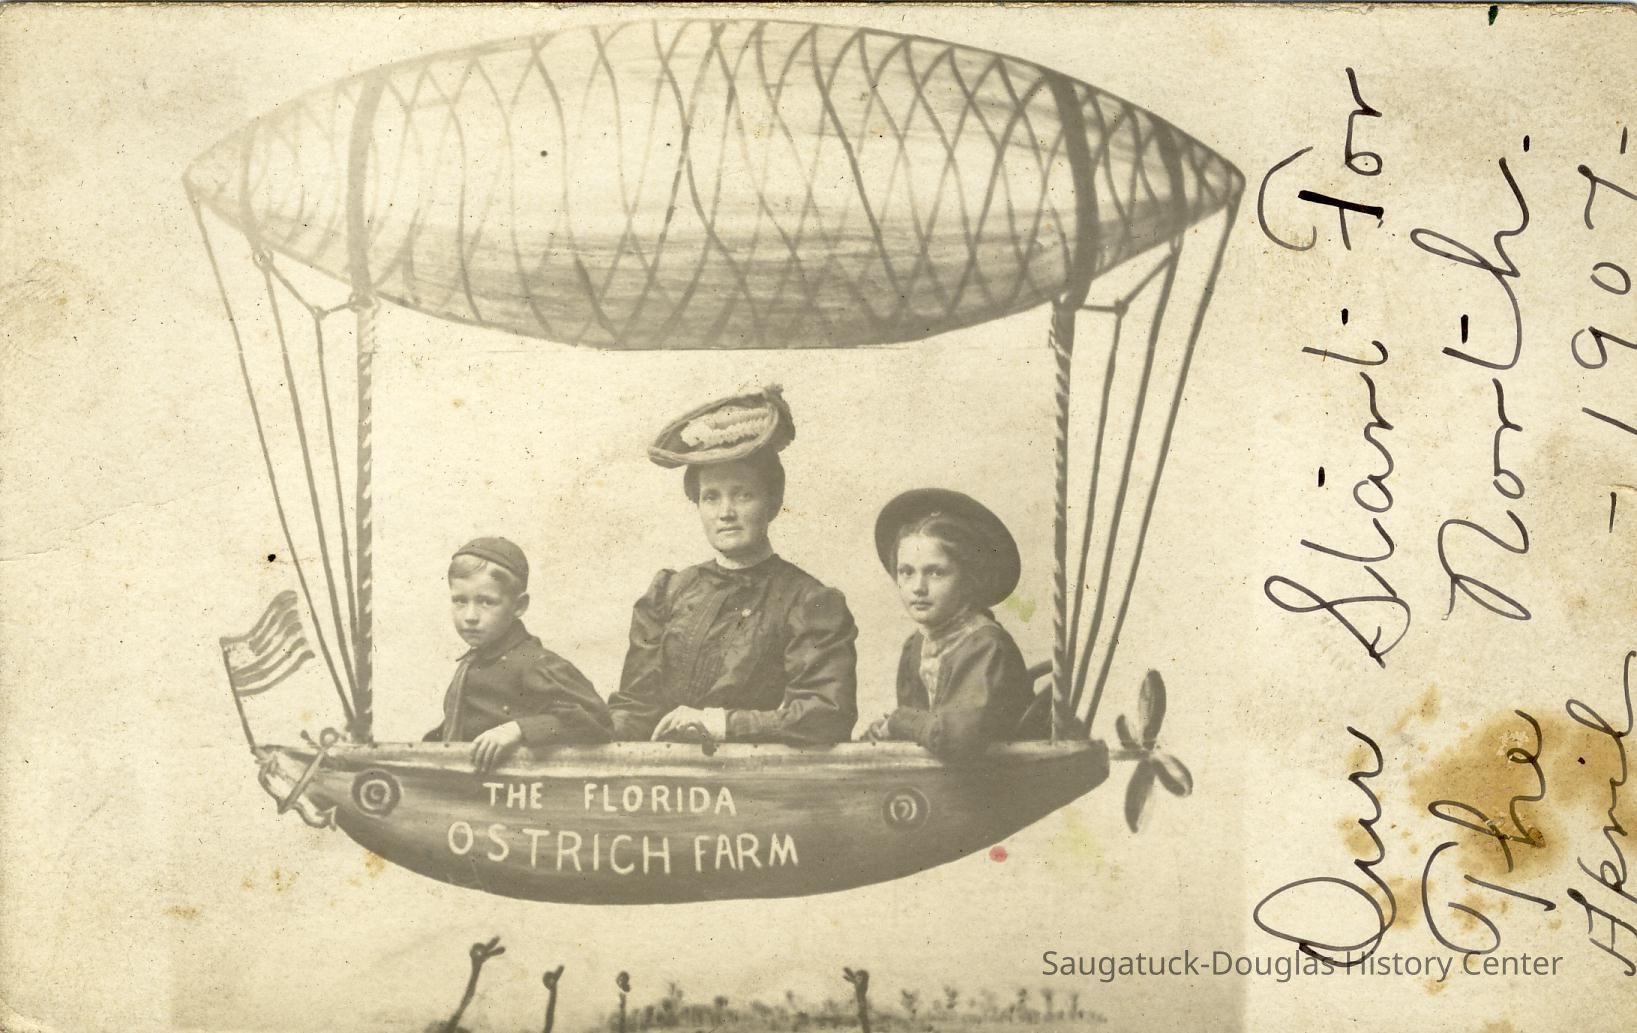 THE FLORIDA
OSTRICH FARM
Our Start For
The North.
April - 1907-
Saugatuck-Douglas History Center